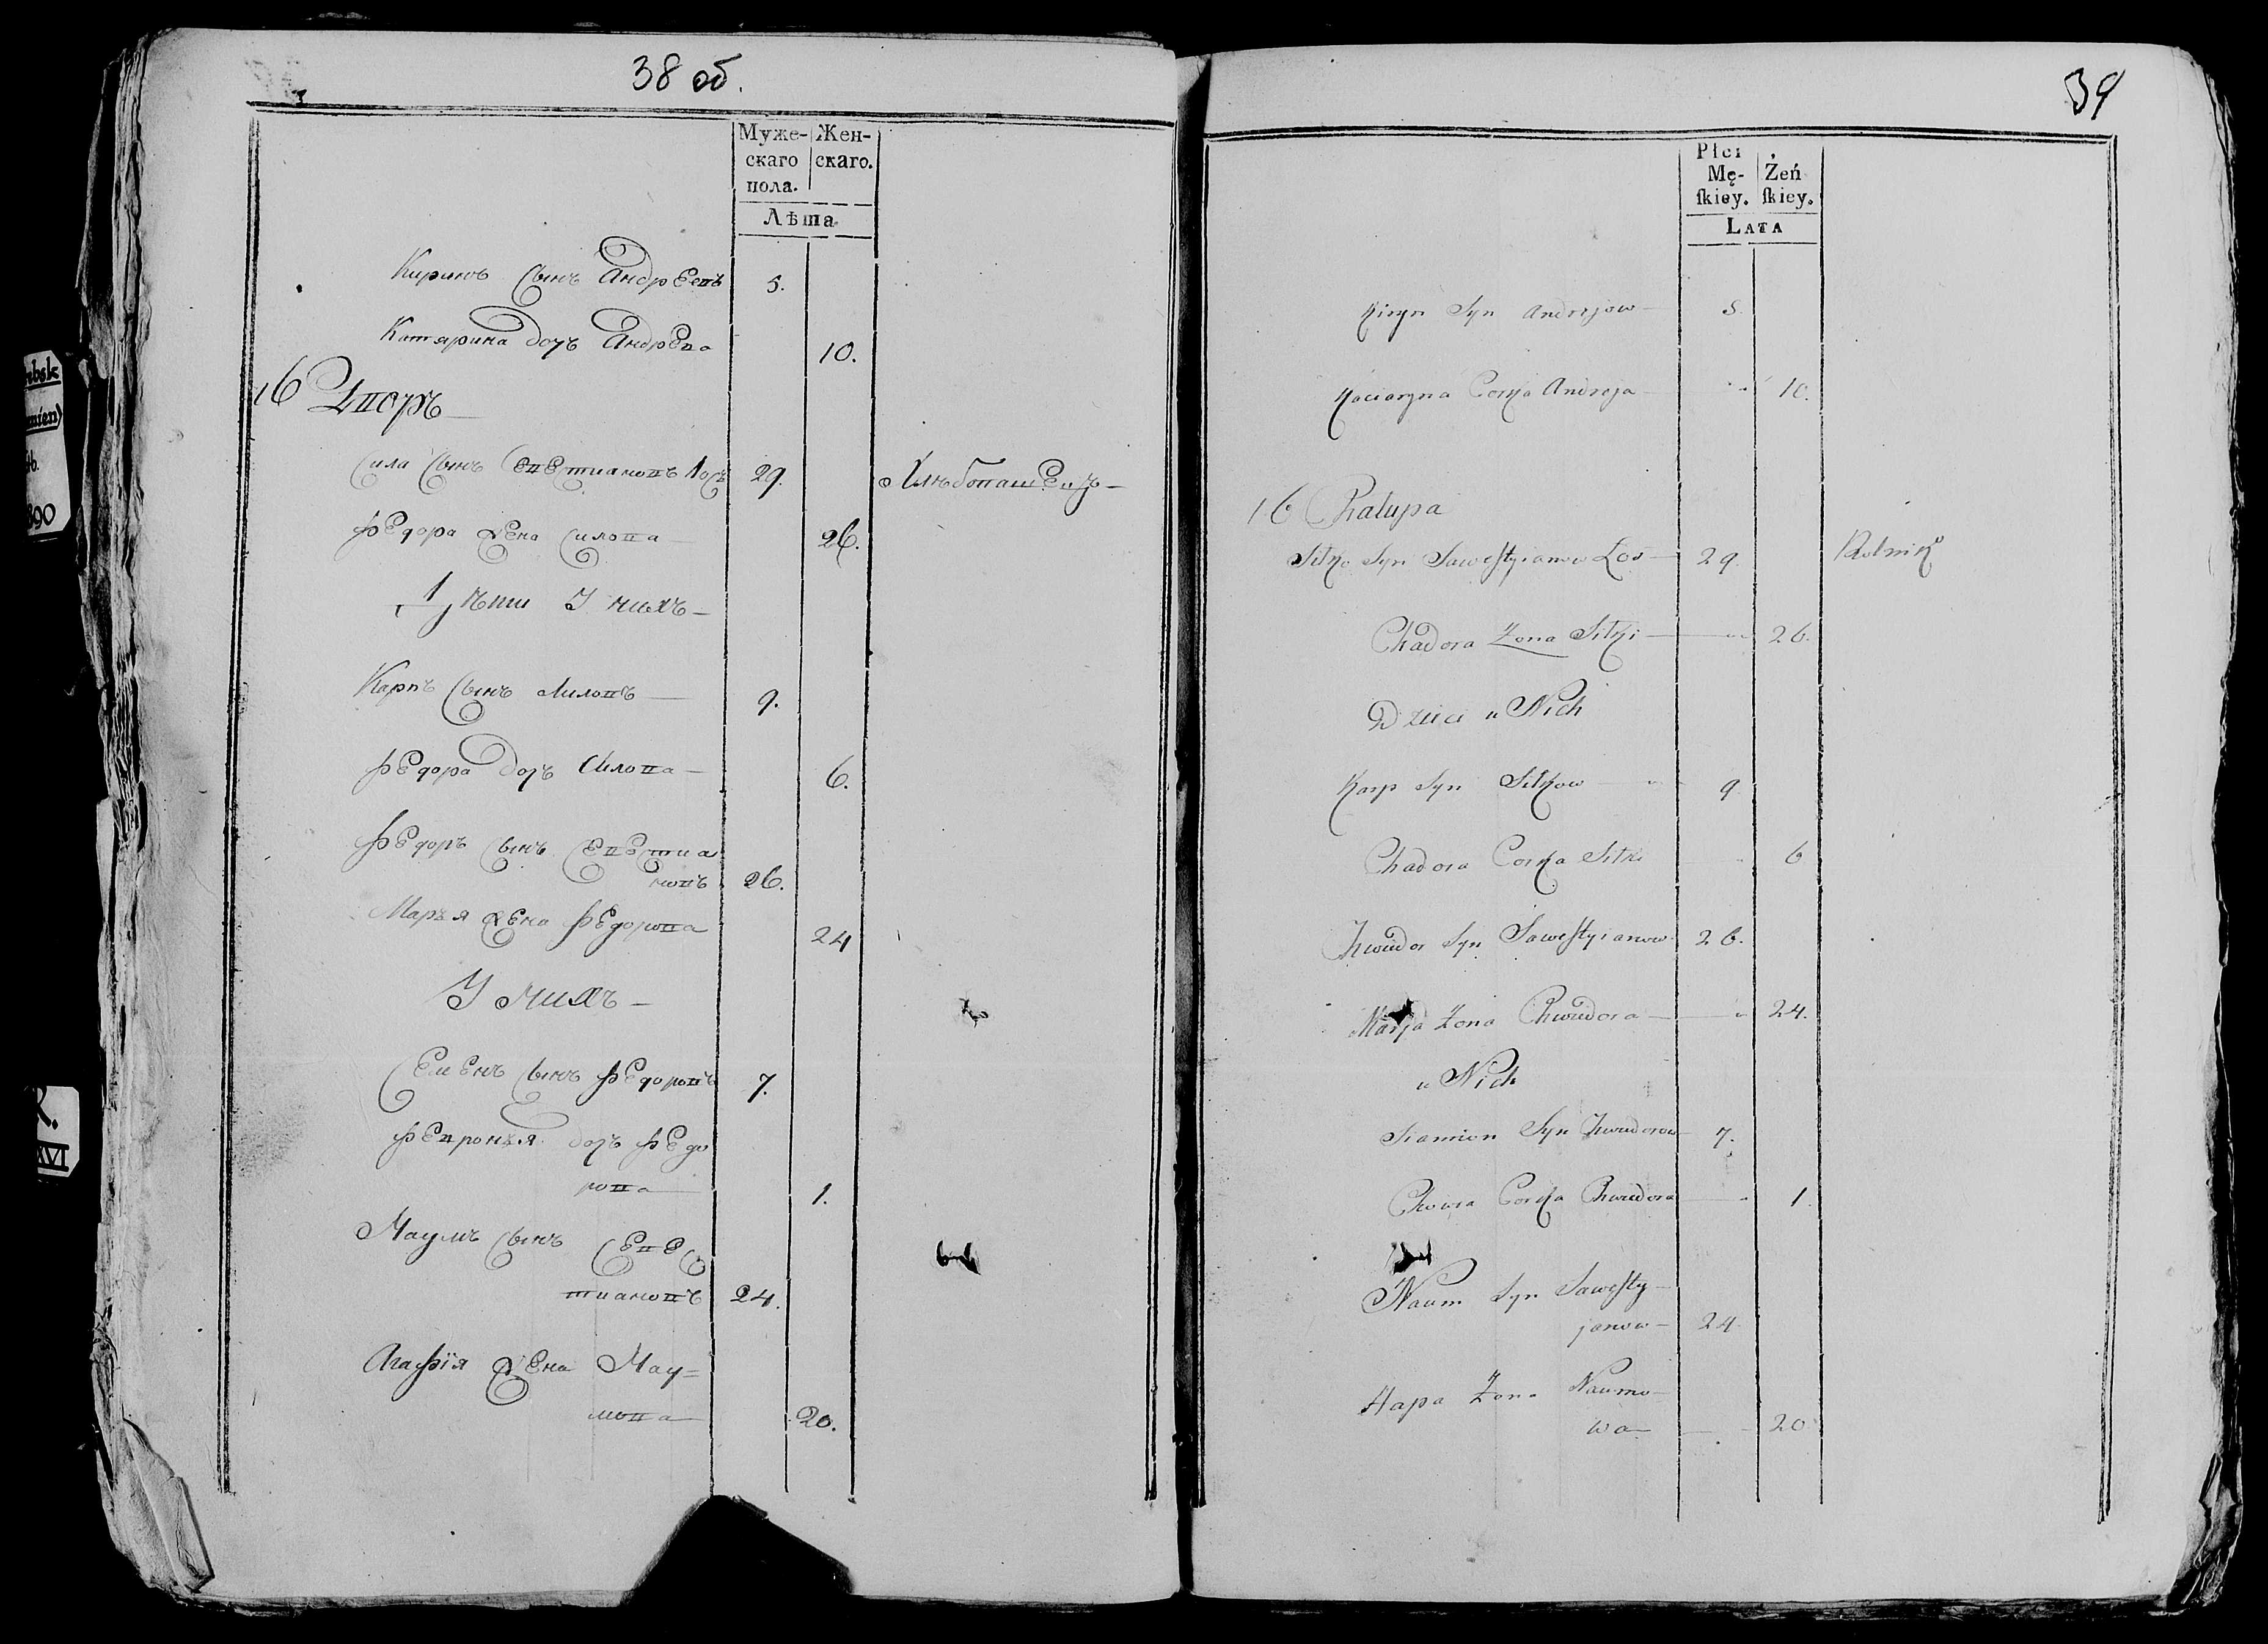 38 об.
Муже-
скаго
пола.
Жен-
скаго.
Лѣта
Кирикъ Сынъ Андреевъ 5.
Катярина дочъ Андрева 10.
16 Дворъ
Сила Сынъ Севестиановъ Лось 29. Хлѣбопашецъ
Федора жена Силова 26.
Дѣти У нихъ
Карпъ Сынъ Силовъ 9.
Федора дочъ Силова 6.
Федоръ Сынъ Севестиа
новъ 26.
Марья жена Федорова 24
У нихъ
Семенъ Сынъ Федоровъ 7.
Февронья дочъ Федо
рова 1.
Наумъ Сынъ Севес
тиановъ 24.
Агафiя жена Нау=
мова 20.
39
Płci
Mę-
ſkiey.
Żeń
ſkiey.
Lata
Kiryn Syn Andrzjow 5
Kaciaryna Corka Andreja 10.
16 Chalupa
Siłko Syn Sawestyianow Łoś 29 Rolnik
Chadora Żona Siłki 26
Dzieci u Nich
Karp Syn Siłkow 9
Chadora Corka Siłki 6
Chwiedor Syn Sawestyianow 26.
Marja Żona Chwiedora 24.
u Nich
Siamion Syn Chwiedorow 7.
Chowra Corka Chwiedora 1
Naum Syn Sawesty-
janow 24
Hapa Żona Naumo-
wa 20